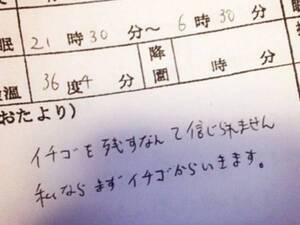 眠 21時30分〜6時30分
温 36度4分 降園 時 分
おたより)
イチゴを残すなんて信じられません
私ならまずイチゴからいきます。